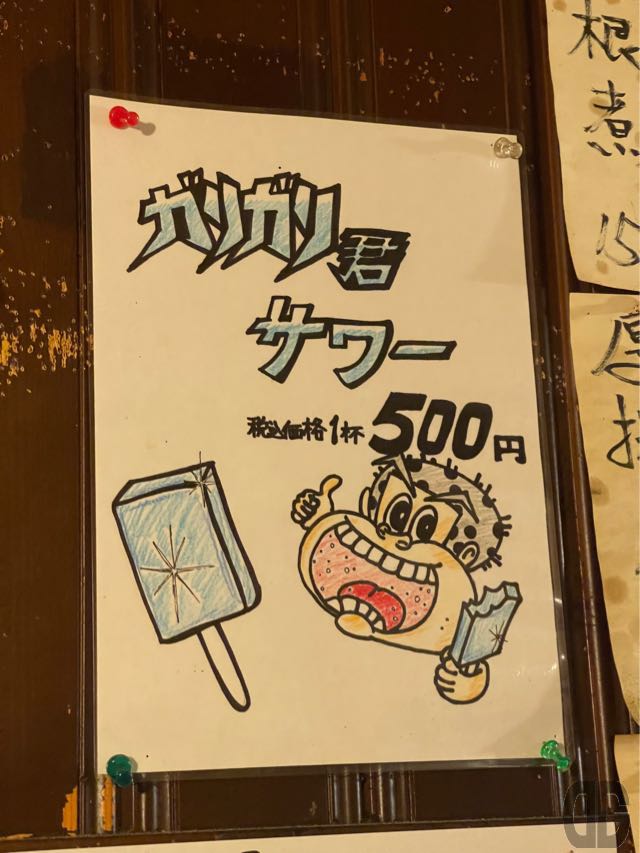 ガリガリ君
サワー
税込価格1杯500円
根
煮
15
厚